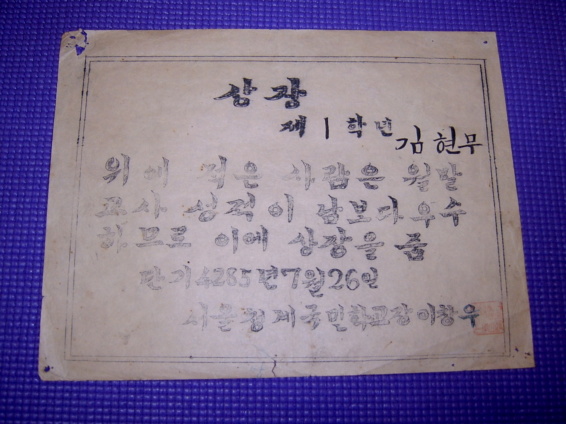 상장
제1학년
김현무
위에 적은 사람은 월말
고사 성적이 남보다 우수
하므로 이에 상장을 줌
단기4285년7월26일
서울 국민학교장 이창우